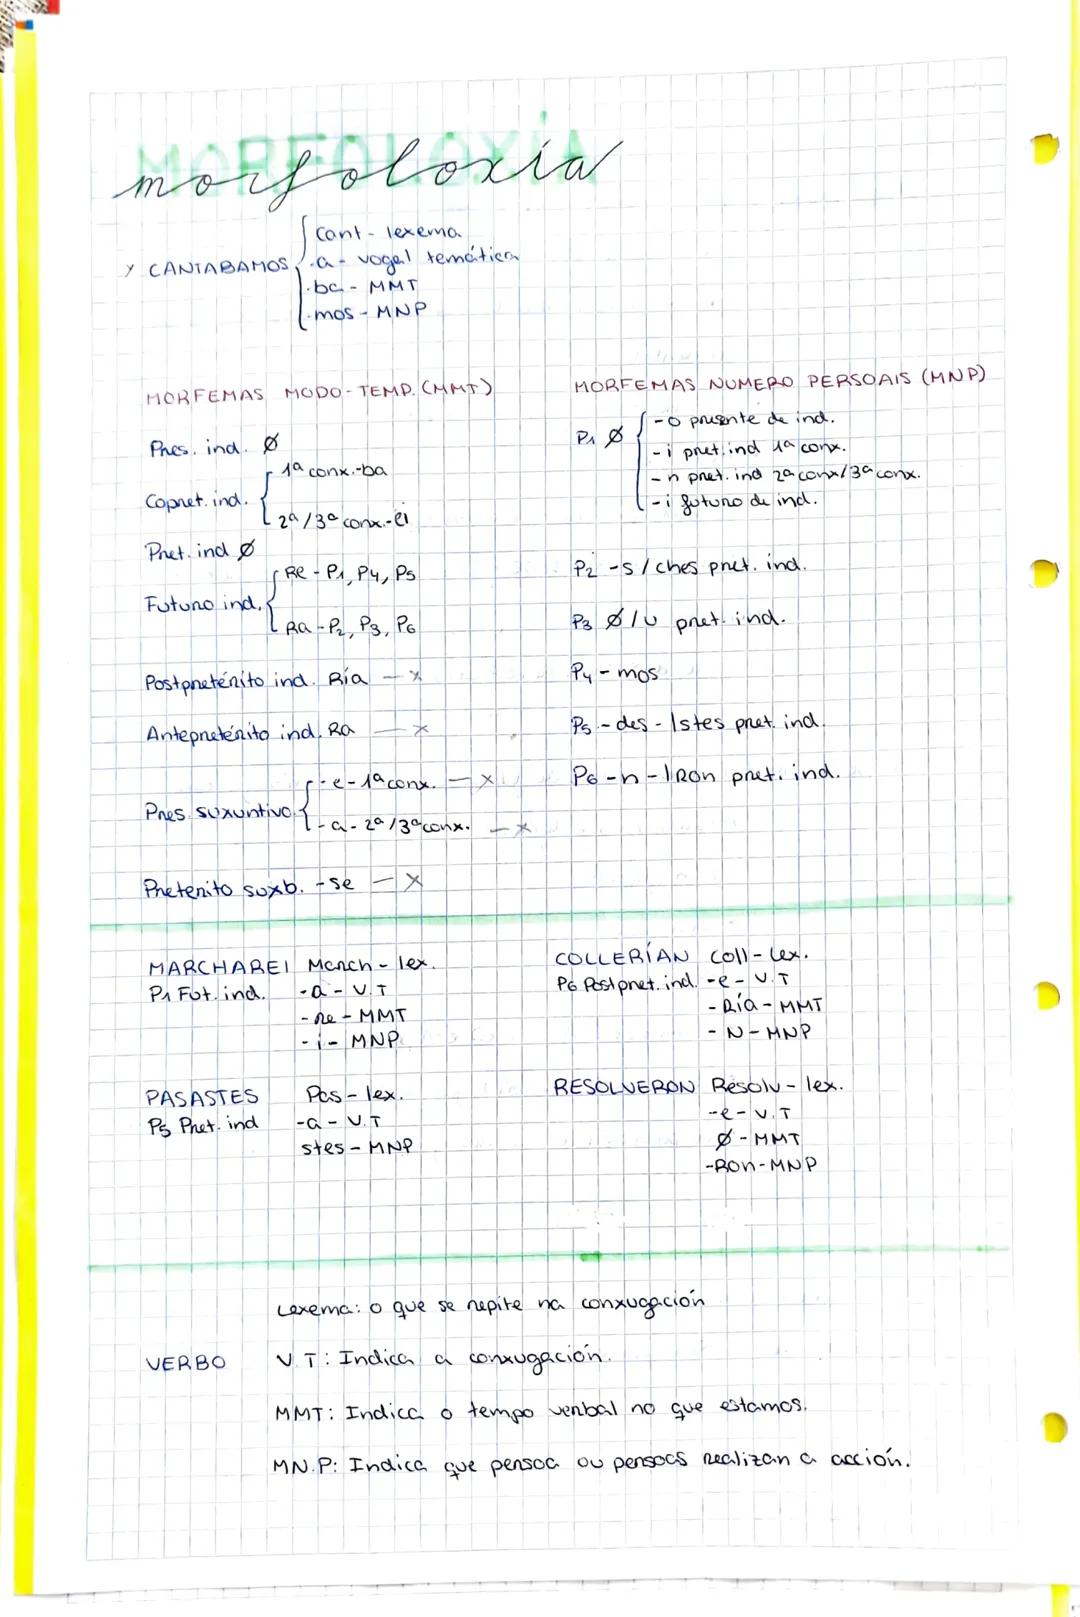 MORFOLOXÍA
morfoloxía
Y CANTABAMOS
Cant - lexema
-a - vogal temática
-ba - MMT
-mos - MNP
MORFEMAS MODO-TEMP. (MMT)
Pres. ind. Ø
Copret. ind.
1ª conx. -ba
2ª/3ª conx. -ei
Pret. ind Ø
Futuro ind.
Re - P1, P4, P5
Ra - P2, P3, P6
Postpretérito ind. Ría — x
Antepretérito ind. Ra — x
Pres. suxuntivo
-e - 1ª conx. — x
-a - 2ª/3ª conx. — x
Preterito suxb. -se — x
MORFEMAS NUMERO PERSOAIS (MNP)
P1 Ø
-o presente de ind.
-i pret. ind 1ª conx.
-n pret. ind 2ª conx/3ª conx.
-i futuro de ind.
P2 -s / ches pret. ind.
P3 Ø/u pret. ind.
P4 - mos
P5 - des - /stes pret. ind.
P6 -n - /Ron pret. ind.
MARCHAREI March - lex.
P1 Fut. ind. -a - V.T
-re - MMT
-i - MNP
COLLERÍAN Coll - Lex.
P6 Postpret. ind. -e - V.T
-Ría - MMT
-N - MNP
PASASTES Pas - lex.
P5 Pret. ind -a - V.T
stes - MNP
RESOLVERON Resolv - lex.
-e - V.T
Ø - MMT
-Ron - MNP
VERBO
Lexema: o que se repite na conxugación
V.T: Indica a conxugación.
MMT: Indica o tempo verbal no que estamos.
MN.P: Indica que persoa ou persoas realizan a acción.